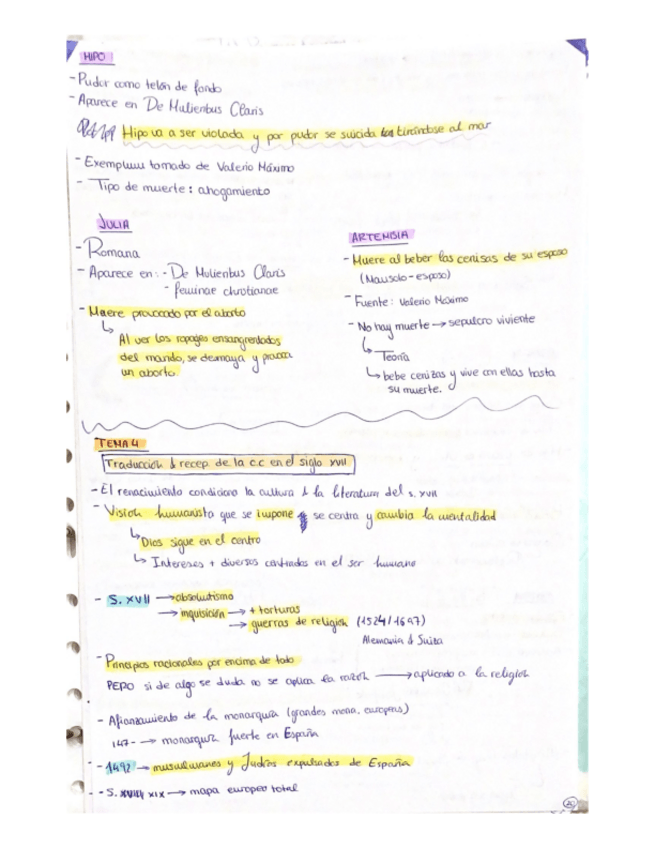 HIPO
- Pudor como telón de fondo
- Aparece en De Mulieribus Claris
Hipo va a ser violada y por pudor se suicida tirándose al mar
- Exemplum tomado de Valerio Máximo
- Tipo de muerte: ahogamiento
JULIA
- Romana
- Aparece en: - De Mulieribus Claris
- feminae christianae
- Muere provocado por el aborto
↳ Al ver los ropajes ensangrentados
del marido, se desmaya y provoca
un aborto.
ARTEMISIA
- Muere al beber las cenizas de su esposo
(Mausolo-esposo)
- Fuente: Valerio Máximo
- No hay muerte → sepulcro viviente
↳ Teoría
↳ bebe cenizas y vive con ellas hasta
su muerte.
TEMA 4
Traducción & recep. de la c.c en el siglo XVII
- El renacimiento condiciona la cultura & la literatura del s. XVII
- Visión humanista que se impone se centra y cambia la mentalidad
↳ Dios sigue en el centro
↳ Intereses + diversos centrados en el ser humano
- S. XVII → absolutismo
→ inquisición → + torturas
→ guerras de religión (1524/1697)
Alemania & Suiza
- Principios racionales por encima de todo
PERO si de algo se duda no se aplica la razón → aplicando a la religión
- Afianzamiento de la monarquía (grandes mona. europeas)
147- → monarquía fuerte en España
- 1492 → musulmanes y Judíos expulsados de España
- S. XIX → mapa europeo total
20